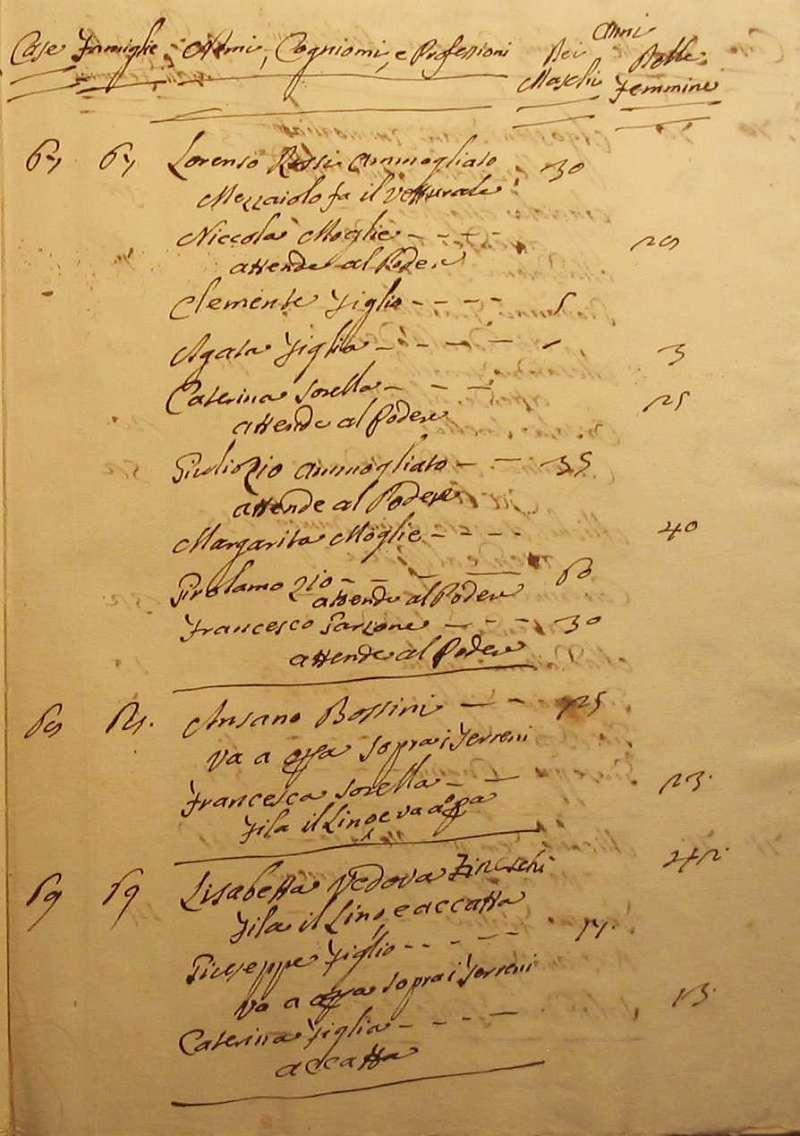 Case Famiglie Nomi, Cogniomi, e Professioni Anni
Dei Maschi Delle Femmine
67 67 Lorenso Rossi Ammogliato 30
Mezzaiolo fa il Vetturale
Niccola Moglie - - - -
attende al Podere
Clemente Figlio - - - -
Agata Figlia - - - - - 3
Caterina Sorella - - - - 25
attende al Podere
Giulio Zio Ammogliato - - 35
attende al Podere
Margarita Moglie - - - - 40
Girolamo Zio - - - - 60
attende al Podere
Francesco Garzone - - - - 30
attende al Podere
68 68. Ansano Bossini - - 25
va a opra sopra i Terreni
Francesca Sorella - - 23.
Fila il Lino e va a opa
69 69 Lisabetta Vedova Fineschi 42.
Fila il Lino, e accatta
Giuseppe Figlio - - - - -
va a opra sopra i Terreni
Caterina Figlia - - - - 13.
accatta